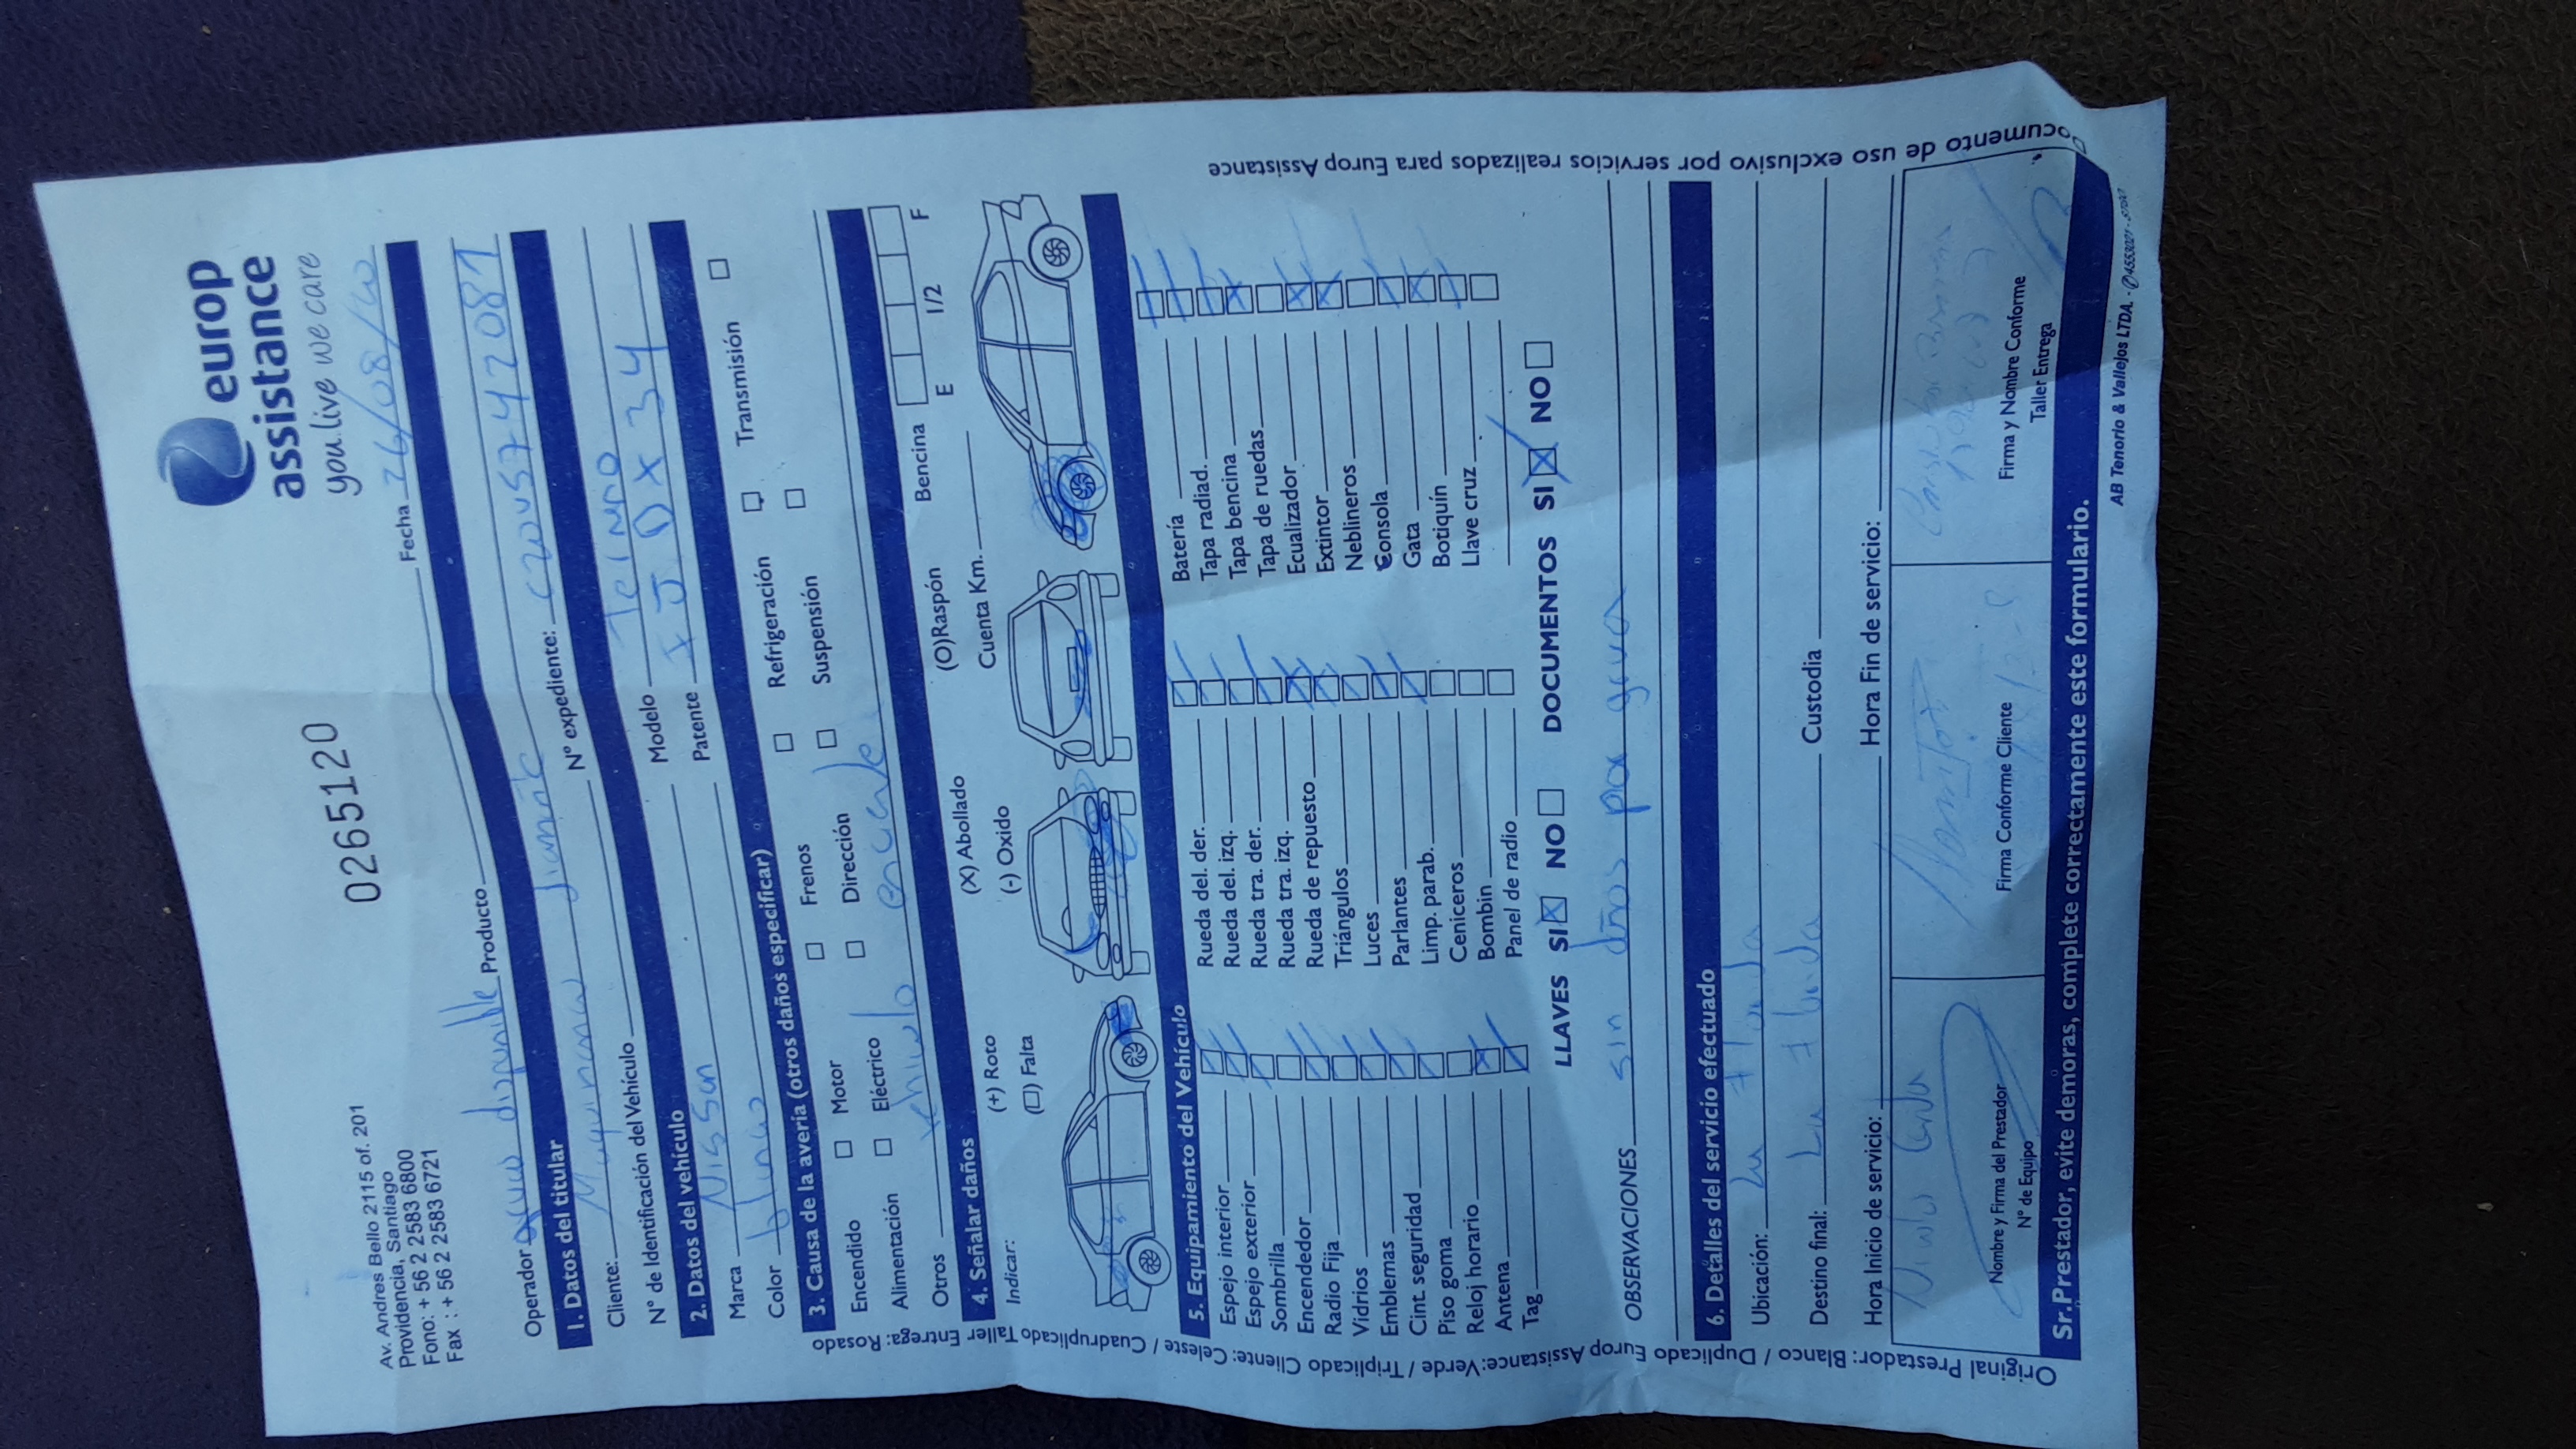 europ
assistance
you live we care
Av. Andres Bello 2115 of. 201
Providencia, Santiago
Fono: + 56 2 2583 6800
Fax : + 56 2 2583 6721
0265120
Fecha 26/08/20
Operador disponible Producto
1. Datos del titular
Cliente: Nº expediente:
Nº de Identificación del Vehículo
2. Datos del vehículo
Marca Nissan Modelo
Color blanco Patente
3. Causa de la avería (otros daños especificar)
Encendido Motor Frenos Refrigeración Transmisión
Alimentación Eléctrico Dirección Suspensión
Otros vehiculo
4. Señalar daños
Indicar: (+) Roto (X) Abollado (O)Raspón Bencina E 1/2 F
(□) Falta (-) Oxido Cuenta Km.
5. Equipamiento del Vehículo
Espejo interior Rueda del. der. Batería
Espejo exterior Rueda del. izq. Tapa radiad.
Sombrilla Rueda tra. der. Tapa bencina
Encendedor Rueda tra. izq. Tapa de ruedas
Radio Fija Rueda de repuesto Ecualizador
Vidrios Triángulos Extintor
Emblemas Luces Neblineros
Cint. seguridad Parlantes Consola
Piso goma Limp. parab. Gata
Reloj horario Ceniceros Botiquín
Antena Bombin Llave cruz
Tag Panel de radio
LLAVES SI NO DOCUMENTOS SI NO
OBSERVACIONES sin dños por grua
6. Detalles del servicio efectuado
Ubicación: La Florida
Destino final: La Florida Custodia
Hora Inicio de servicio: Hora Fin de servicio:
Nombre y Firma del Prestador
Nº de Equipo
Firma Conforme Cliente
Firma y Nombre Conforme
Taller Entrega
Sr.Prestador, evite demoras, complete correctamente este formulario.
Original Prestador: Blanco / Duplicado Europ Assistance:Verde / Triplicado Cliente: Celeste / Cuadruplicado Taller Entrega: Rosado
Documento de uso exclusivo por servicios realizados para Europ Assistance
AB Tenorio & Vallejos LTDA. -